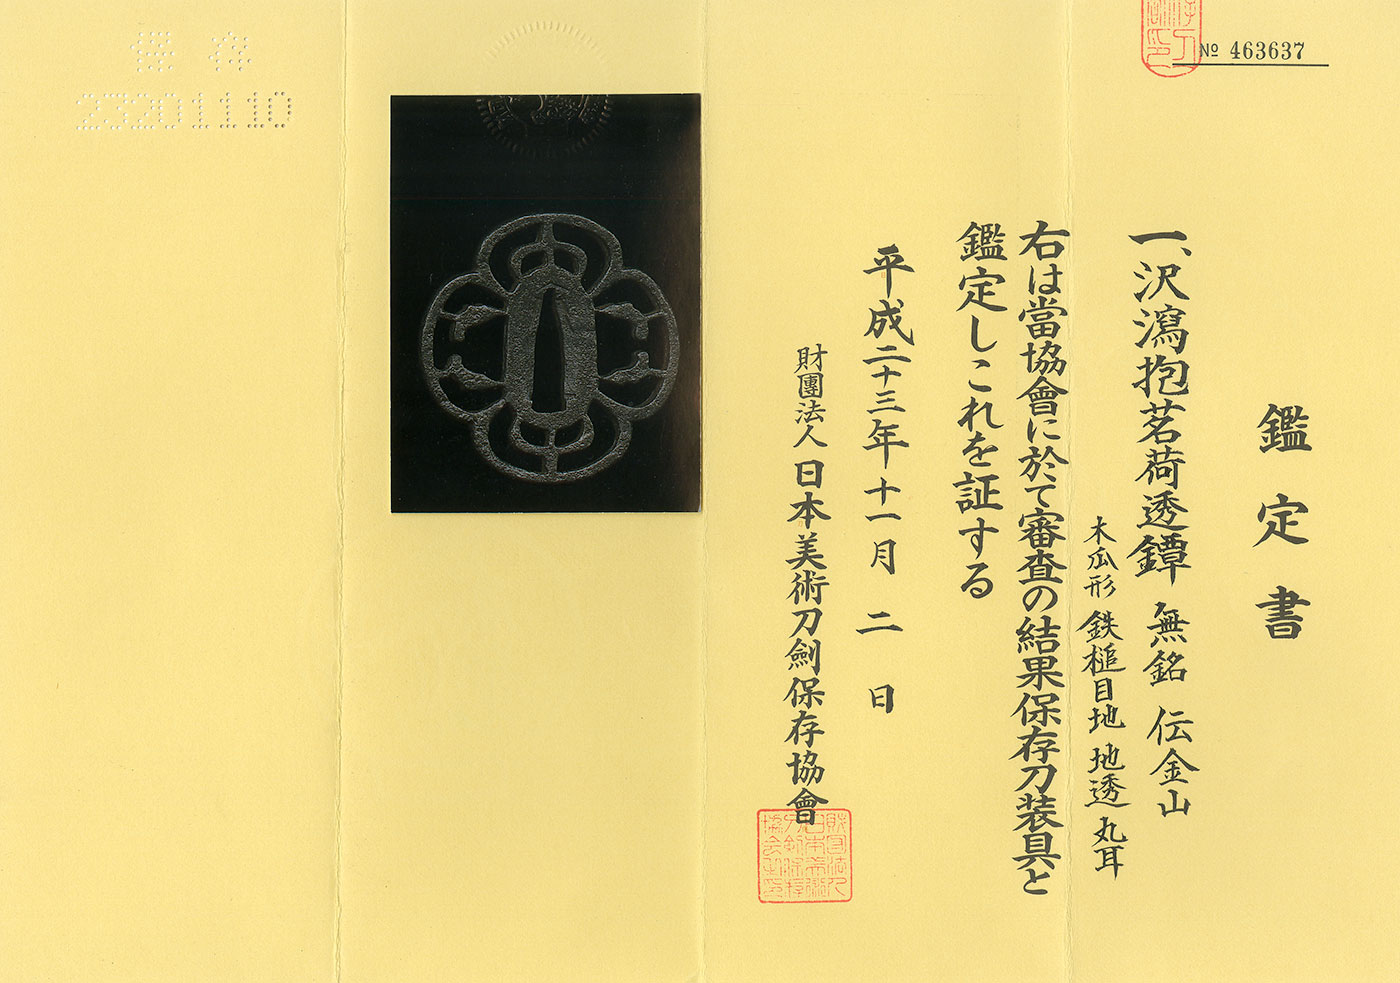 № 463637
鑑定書
一、沢瀉抱茗荷透鐔 無銘 伝金山
木瓜形 鉄槌目地 地透 丸耳
右は當協會に於て審査の結果保存刀装具と
鑑定しこれを証する
平成二十三年十一月二日
財團法人 日本美術刀劍保存協會
保存
23201110